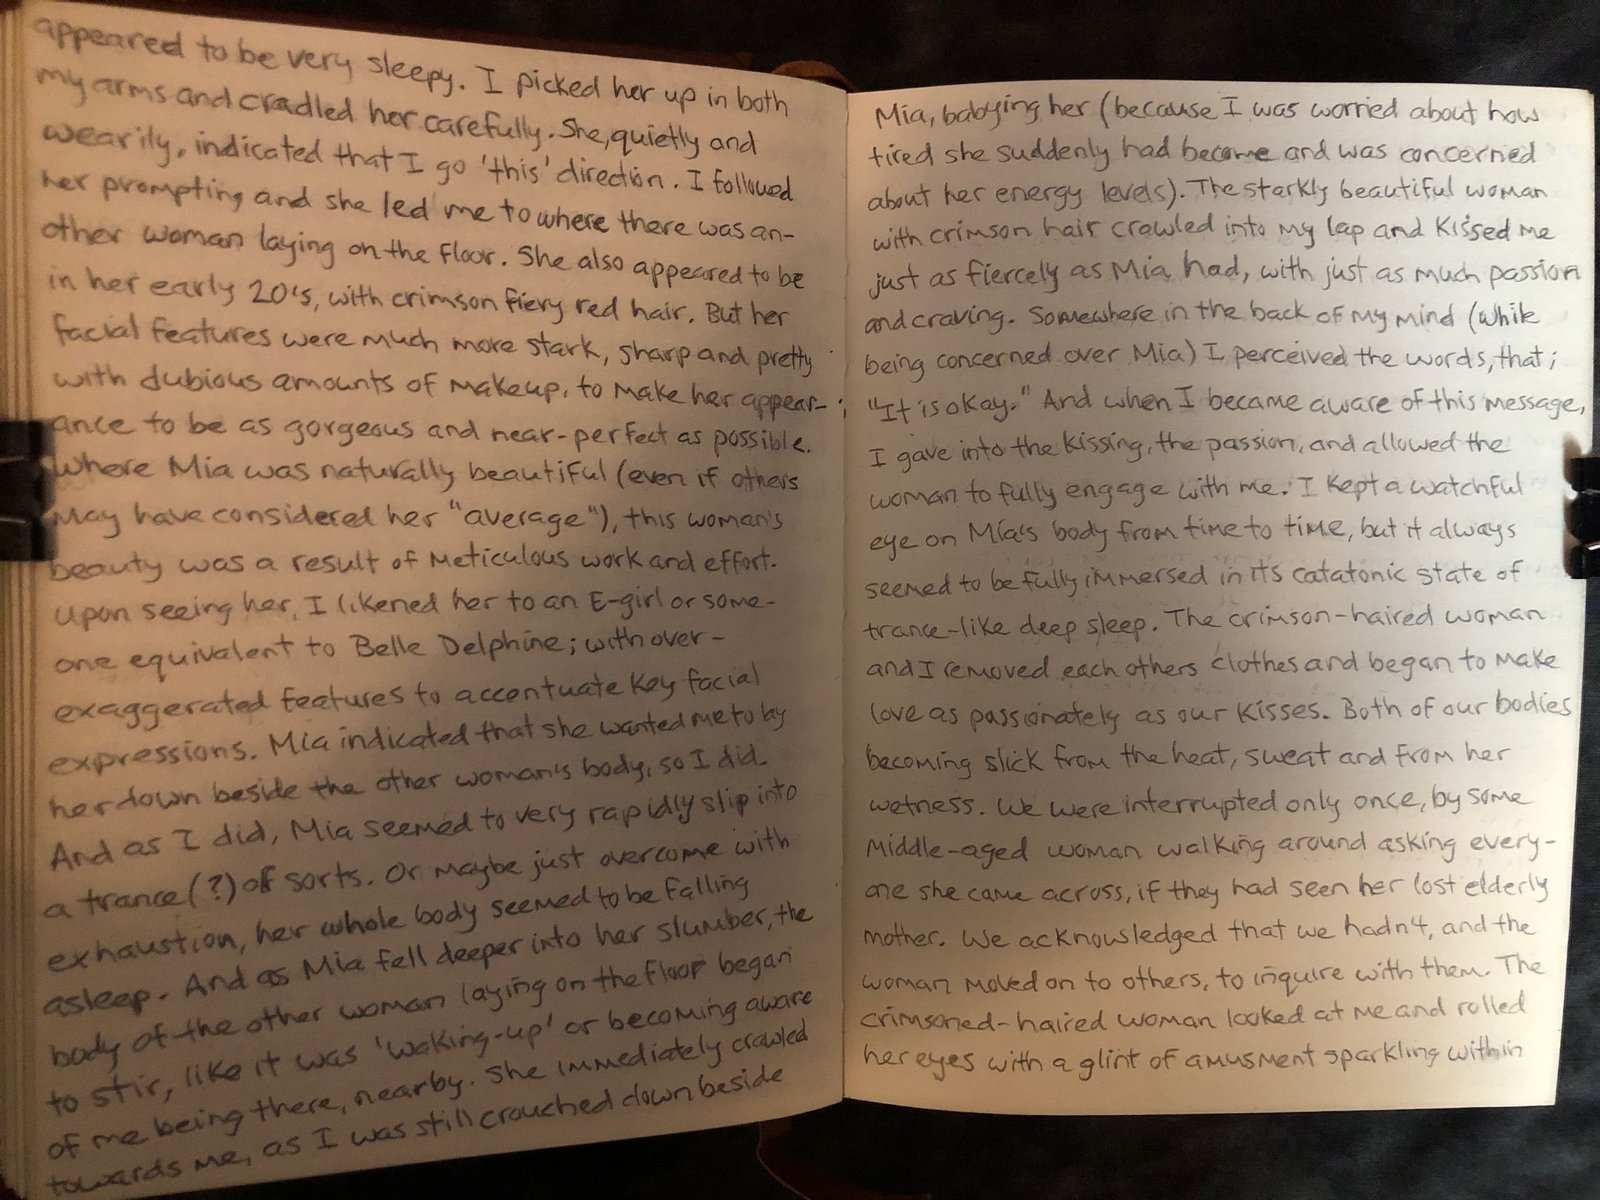 appeared to be very sleepy. I picked her up in both
my arms and cradled her carefully. She, quietly and
wearily, indicated that I go 'this' direction. I followed
her prompting and she led me to where there was an-
other woman laying on the floor. She also appeared to be
in her early 20's, with crimson fiery red hair. But her
facial features were much more stark, sharp and pretty
with dubious amounts of makeup, to make her appear-
ance to be as gorgeous and near-perfect as possible.
Where Mia was naturally beautiful (even if others
may have considered her "average"), this woman's
beauty was a result of meticulous work and effort.
Upon seeing her, I likened her to an E-girl or some-
one equivalent to Belle Delphine; with over-
exaggerated features to accentuate key facial
expressions. Mia indicated that she wanted me to lay
her down beside the other woman's body, so I did.
And as I did, Mia seemed to very rapidly slip into
a trance(?) of sorts. Or maybe just overcome with
exhaustion, her whole body seemed to be falling
asleep. And as Mia fell deeper into her slumber, the
body of the other woman laying on the floor began
to stir, like it was 'waking-up' or becoming aware
of me being there, nearby. She immediately crawled
towards me, as I was still crouched down beside
Mia, babying her (because I was worried about how
tired she suddenly had become and was concerned
about her energy levels). The starkly beautiful woman
with crimson hair crawled into my lap and kissed me
just as fiercely as Mia had, with just as much passion
and craving. Somewhere in the back of my mind (while
being concerned over Mia) I perceived the words, that;
"It is okay." And when I became aware of this message,
I gave into the kissing, the passion, and allowed the
woman to fully engage with me. I kept a watchful
eye on Mia's body from time to time, but it always
seemed to be fully immersed in its catatonic state of
trance-like deep sleep. The crimson-haired woman
and I removed each others clothes and began to make
love as passionately as our kisses. Both of our bodies
becoming slick from the heat, sweat and from her
wetness. We were interrupted only once, by some
middle-aged woman walking around asking every-
one she came across, if they had seen her lost elderly
mother. We acknowledged that we hadn't, and the
woman moved on to others, to inquire with them. The
crimsoned-haired woman looked at me and rolled
her eyes with a glint of amusment sparkling within